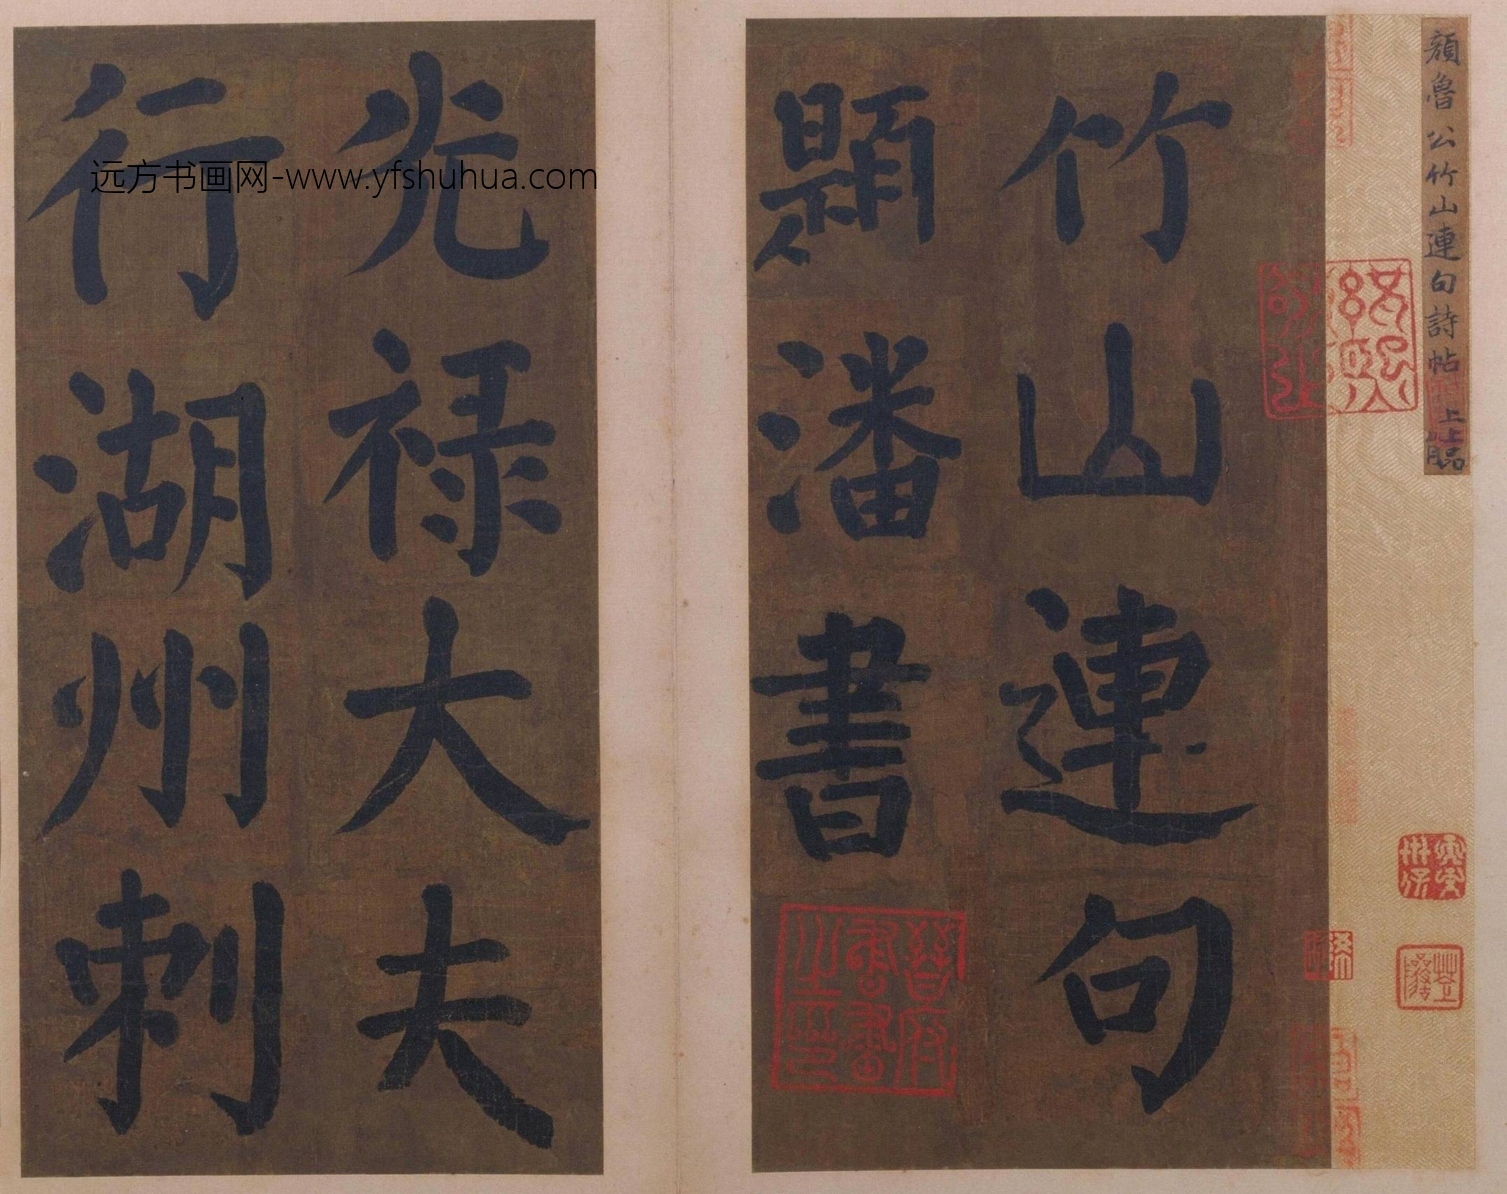 顔魯公竹山連句詩帖上上品
竹山連句
題潘書
晉府書畫之印
光禄大夫
行湖州刺
远方书画网-www.yfshuhua.com